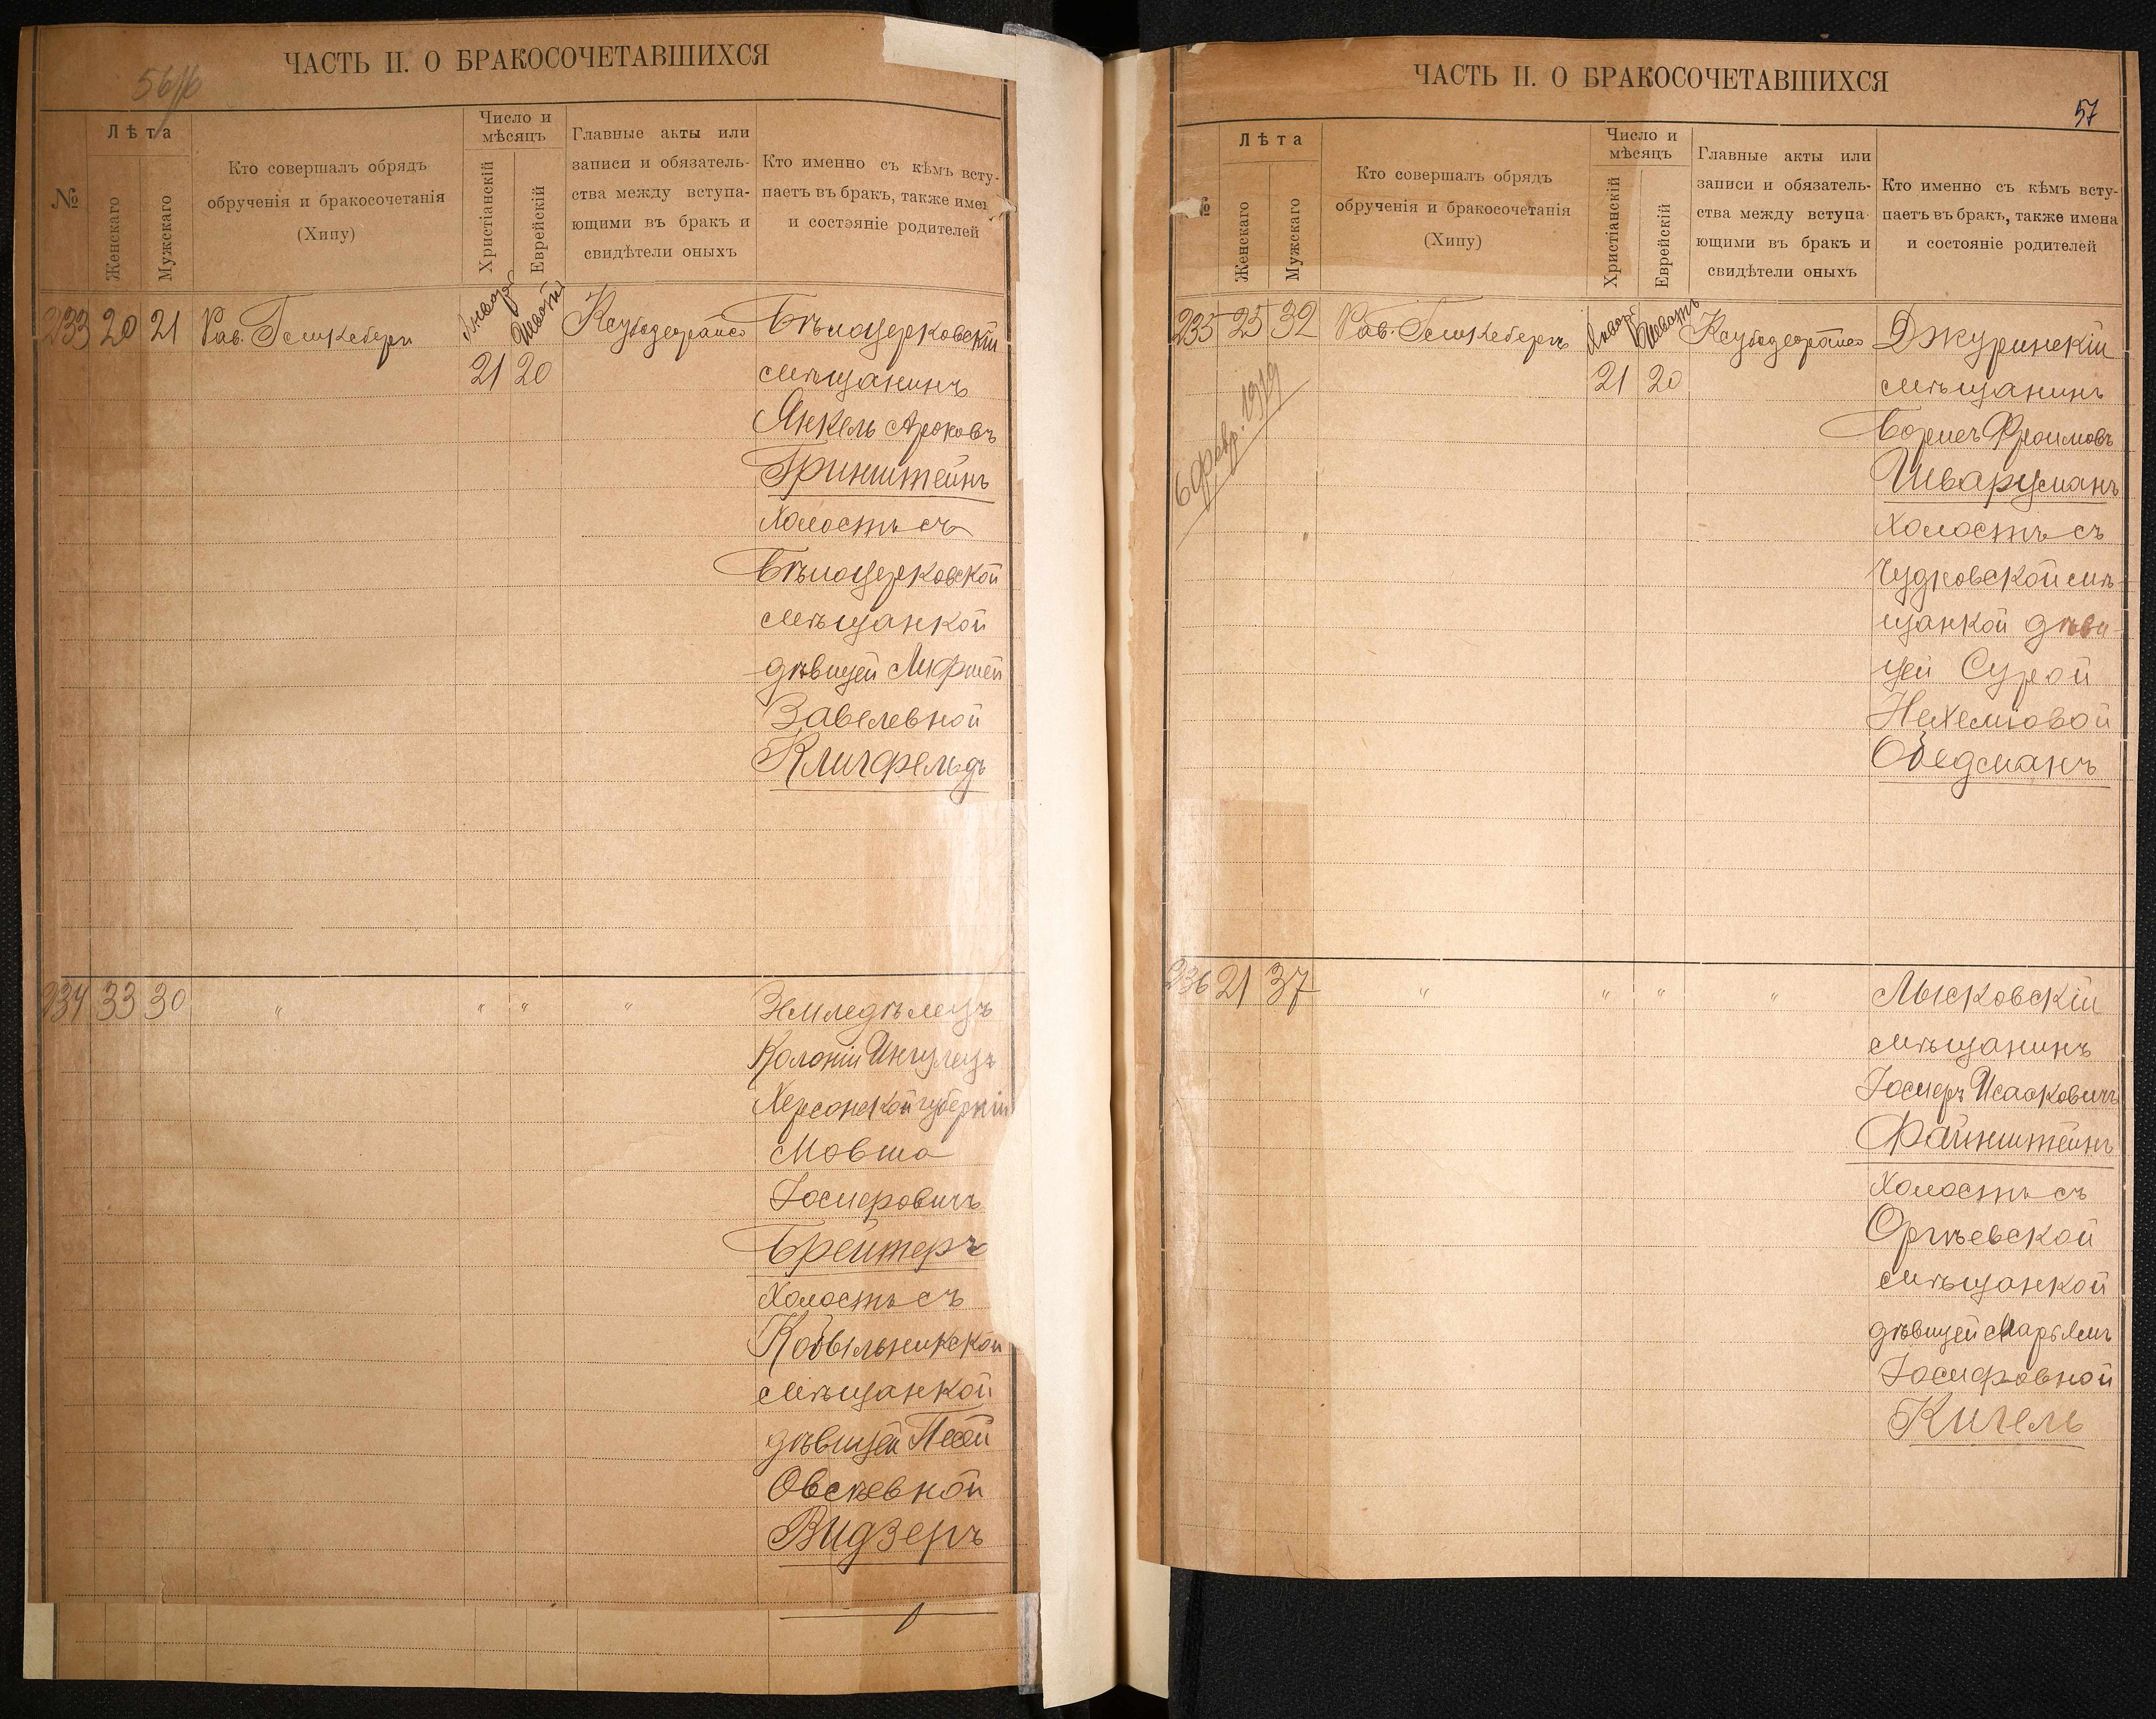 ЧАСТЬ II. О БРАКОСОЧЕТАВШИХСЯ
Лѣта
Число и
мѣсяцъ
№
Женскаго
Мужскаго
Кто совершалъ обрядъ
обрученія и бракосочетанія
(Хипу)
Христіанскій
Еврейскій
Главные акты или
записи и обязатель-
ства между вступа-
ющими въ бракъ и
свидѣтели оныхъ
Кто именно съ кѣмъ всту-
паетъ въ бракъ, также имен
и состояніе родителей
233 20 21 Рав. Января Шватъ Бѣлоцерковскій
21 20 мѣщанинъ
Янкель Ароновъ
Гринштейнъ
холостъ съ
Бѣлоцерковской
мѣщанкой
дѣвицей Лифшей
Завелевной
Клигфельдъ
234 33 30 " " " " Земледѣлецъ
Колоніи Ингулецъ
Херсонской губерніи
Мовша
Іосифовичъ
Брейтеръ
холостъ съ
Кобыльникской
мѣщанкой
дѣвицей Песей
Овсѣевной
Видзеръ
ЧАСТЬ II. О БРАКОСОЧЕТАВШИХСЯ
57
Лѣта
Число и
мѣсяцъ
№
Женскаго
Мужскаго
Кто совершалъ обрядъ
обрученія и бракосочетанія
(Хипу)
Христіанскій
Еврейскій
Главные акты или
записи и обязатель-
ства между вступа-
ющими въ бракъ и
свидѣтели оныхъ
Кто именно съ кѣмъ всту-
паетъ въ бракъ, также имена
и состояніе родителей
235 25 32 Рав. Января Шватъ Джуринскій
21 20 мѣщанинъ
6 февр. 1919
Борисъ Фроимовъ
Шварцманъ
холостъ съ
Чудновской мѣ-
щанкой дѣви-
цей Сурой
Нехеміовой
Обедманъ
236 21 37 " " " " Лысковскій
мѣщанинъ
Іосифъ Исааковичъ
Файнштейнъ
холостъ съ
Оргѣевской
мѣщанкой
дѣвицей Марьямъ
Іосифовной
Кигель